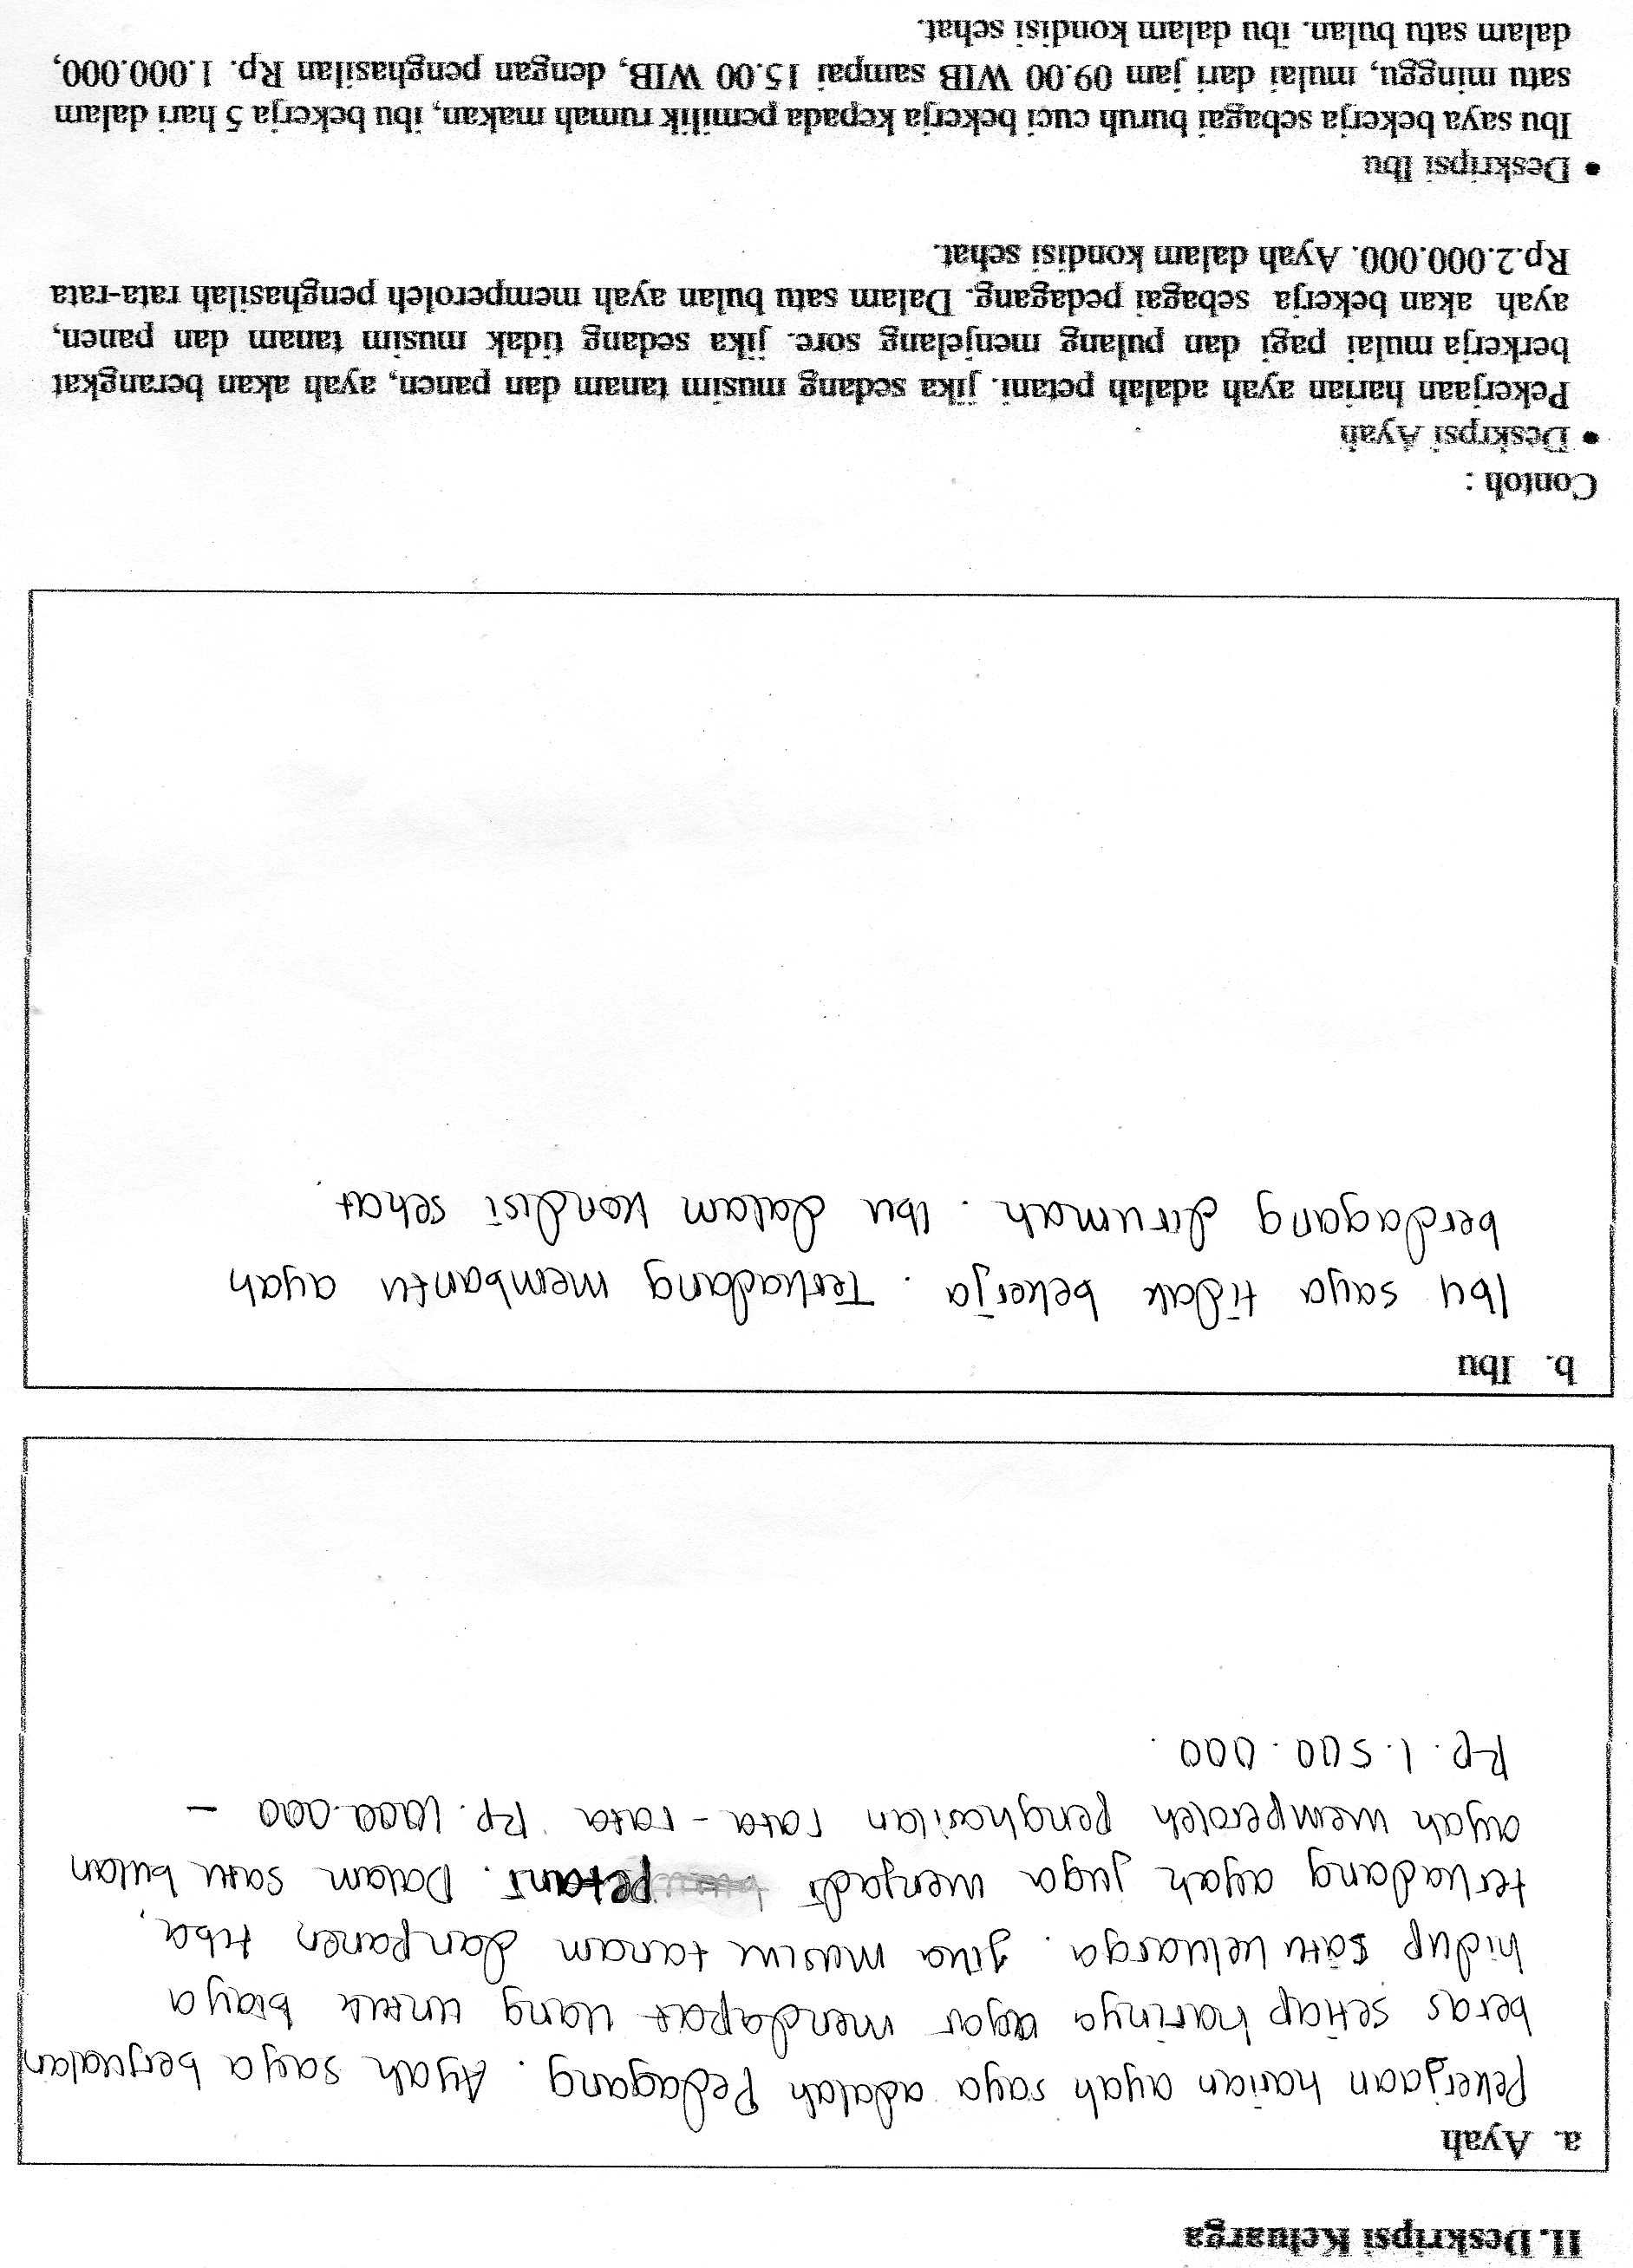 II. Deskripsi Keluarga
a. Ayah
Pekerjaan harian ayah saya adalah Pedagang. Ayah saya berjualan
beras setiap harinya agar mendapat uang untuk biaya
hidup satu keluarga. Jika musim tanam dan panen tiba,
terkadang ayah juga menjadi petani. Dalam satu bulan
ayah memperoleh penghasilan rata-rata Rp. 1000.000 -
Rp. 1.500.000.
b. Ibu
Ibu saya tidak bekerja. Terkadang membantu ayah
berdagang dirumah. Ibu dalam kondisi sehat.
Contoh :
• Deskrpsi Ayah
Pekerjaan harian ayah adalah petani. jika sedang musim tanam dan panen, ayah akan berangkat
berkerja mulai pagi dan pulang menjelang sore. jika sedang tidak musim tanam dan panen,
ayah akan bekerja sebagai pedagang. Dalam satu bulan ayah memperoleh penghasilah rata-rata
Rp.2.000.000. Ayah dalam kondisi sehat.
• Deskripsi Ibu
Ibu saya bekerja sebagai buruh cuci bekerja kepada pemilik rumah makan, ibu bekerja 5 hari dalam
satu minggu, mulai dari jam 09.00 WIB sampai 15.00 WIB, dengan penghasilan Rp. 1.000.000,
dalam satu bulan. ibu dalam kondisi sehat.